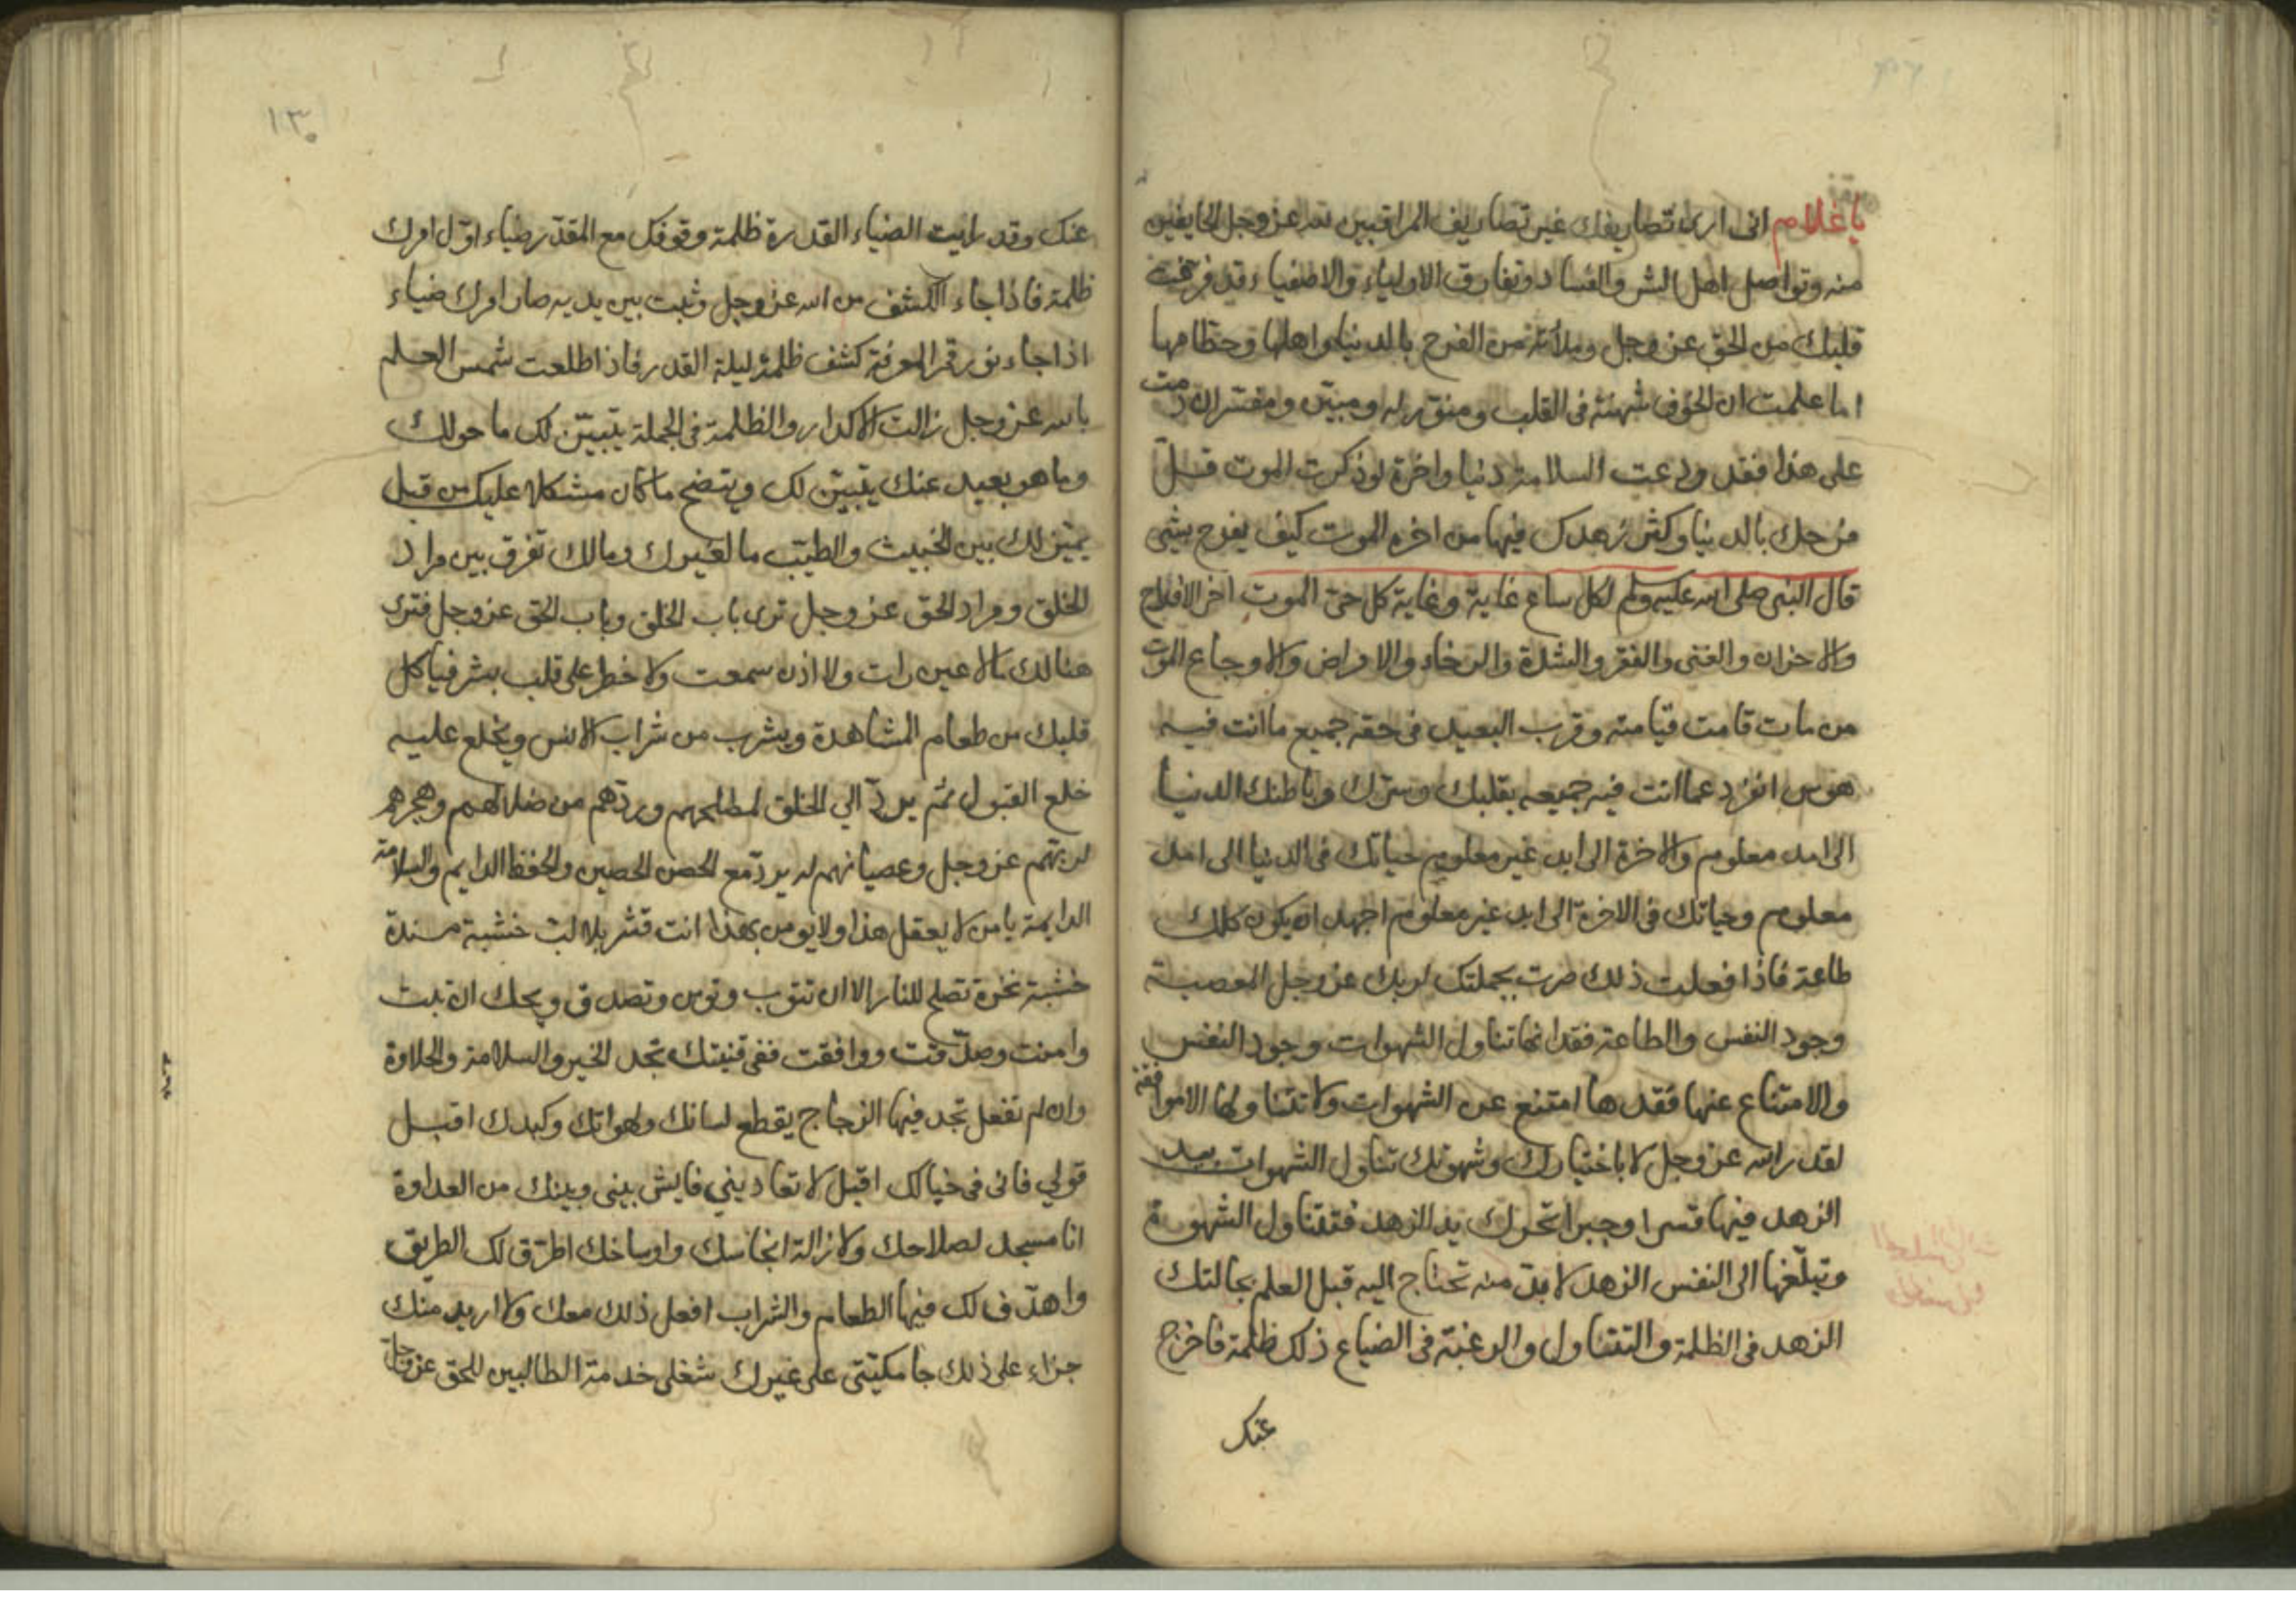 يا غلام انى ارى تصاريفك غير تصاريف المراقبين لله عز وجل الخايفين
منه وتواصل اهل الشر والفساد وتفارق الاولياء والاصفياء قد فرغت
قلبك من الحق عز وجل وملأته من الفرح بالدنيا واهلها وحطامها
اما علمت ان الخوف شحنة فى القلب ومنور له ومبين ومفسر ان دمت
على هذا فقد ودعت السلامة دنيا واخرة لو ذكرت الموت قل
فرحك بالدنيا وكثر زهدك فيها من اخره الموت كيف يفرح بشئ
قال النبى صلى الله عليه وسلم لكل ساع غاية وغاية كل حى الموت اخر الافراح
والاحزان والغنى والفقر والشدة والرخاء والامراض والاوجاع الموت
من مات قامت قيامته وقرب البعيد فى حقه جميع ما انت فيه
هوس انفرد عما انت فيه جميعه بقلبك وسرك وباطنك الدنيا
الى امد معلوم والاخرة الى ابد غير معلوم حياتك فى الدنيا الى امد
معلوم وحياتك فى الاخرة الى ابد غير معلوم اجهد ان يكون كلك
طاعة فاذا فعلت ذلك صرت بجملتك لربك عز وجل المعصية
وجود النفس والطاعة فقدانها تناول الشهوات وجود النفس
والامتناع عنها فقدها امتنع عن الشهوات ولا تتناولها الا موافقة
لقدر الله عز وجل لا باختيارك وشهوتك تناول الشهوات بيد
الزهد فيها قسرا وجبرا تحرك يد الزهد فتتناول الشهوة
وتبلغها الى النفس الزهد لا بد منه تحتاج اليه قبل العلم بحالتك
الزهد فى الظلمة والتناول والرغبة فى الضياع ذلك ظلمة فاخرج
عنك
١٣٠
عنك وقد رايت الضياء القدرة ظلمة وقوفك مع المقدر ضياء اول امرك
ظلمة فاذا جاء الكشف من الله عز وجل وثبت بين يديه صار امرك ضياء
اذا جاء نور قمر المعرفة كشف ظلمة ليلة القدر فاذا طلعت شمس العلم
بالله عز وجل زالت الاكدار والظلمة فى الجملة يتبين لك ما حولك
وما هو بعيد عنك يتبين لك ويتضح ما كان مشكلا عليك من قبل
يميز لك بين الخبيث والطيب ما لغيرك وما لك تفرق بين مراد
الخلق ومراد الحق عز وجل ترى باب الخلق وباب الحق عز وجل فترى
هنالك ما لا عين رات ولا اذن سمعت ولا خطر على قلب بشر فياكل
قلبك من طعام المشاهدة ويشرب من شراب الانس ويخلع عليه
خلع القبول ثم يرد الي الخلق لمصالحهم وردهم من ضلالهم وهجرهم
لربهم عز وجل وعصيانهم له يرد مع الحصن الحصين والحفظ الدايم والسلامة
الدايمة يا من لا يعقل هذا ولا يومن بهذا انت قشر بلا لب خشبة مسندة
خشبة نخرة تصلح للنار الا ان تتوب وتومن وتصدق ويحك ان تبت
وامنت وصدقت ووافقت ففى قنينتك تجد الخير والسلامة والحلاوة
وان لم تفعل تجد فيها الزجاج يقطع لسانك ولهواتك وكبدك اقبل
قولي فانى فى خيالك اقبل لا تعاديني فايش بينى وبينك من العداوة
انا مسجد لصلاحك ولازالة انجاسك واوساخك اطرق لك الطريق
واهدف لك فيها الطعام والشراب افعل ذلك معك ولا اريد منك
جزاء على ذلك جامكيتى على غيرك شغلى خدمة الطالبين للحق عز وجل